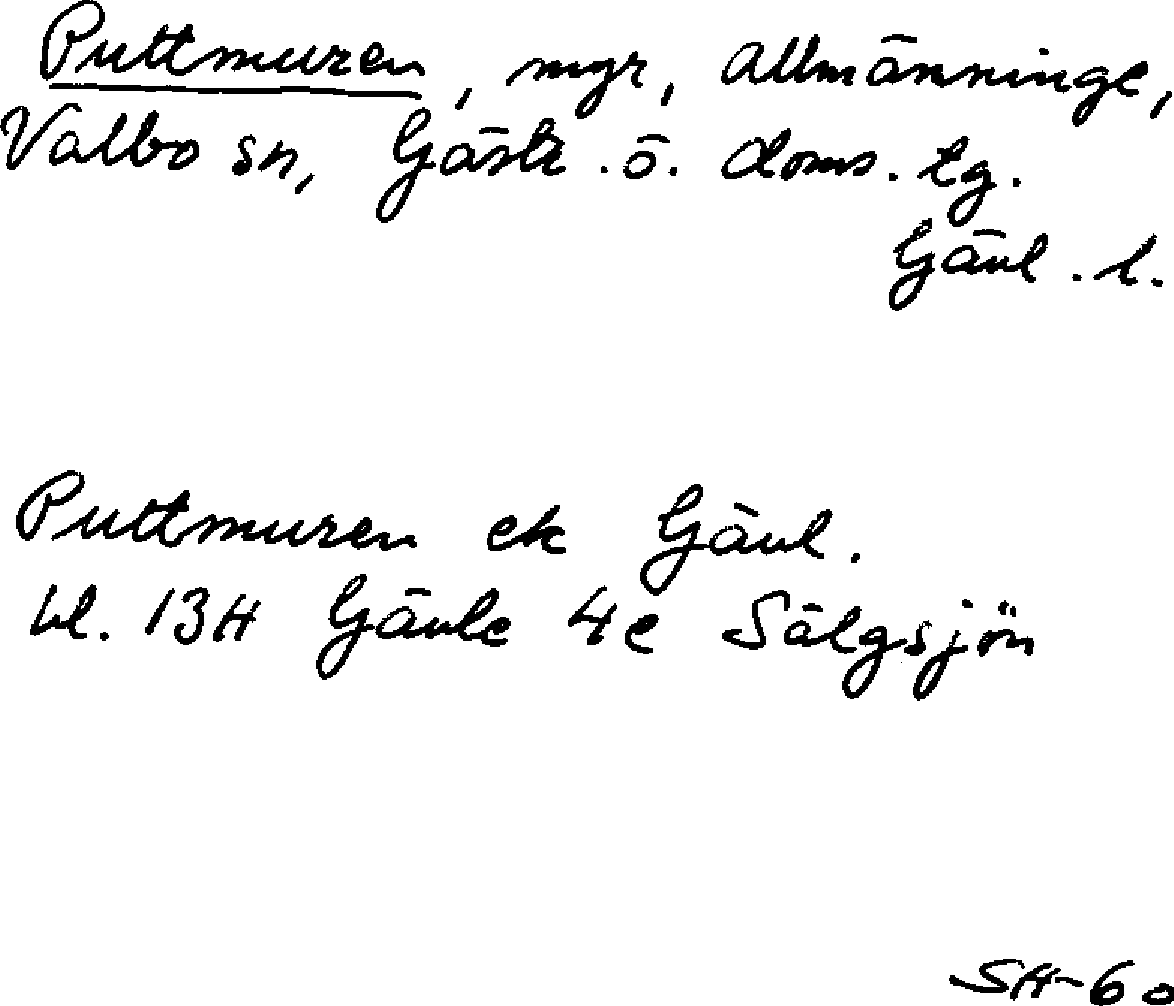 Puttmuren, myr, Allmänninge,
Valbo sn, Gästr. ö. doms. tg.
Gävl. l.
Puttmuren ek Gävl.
bl. 13H Gävle 4e Sälgsjön
SH-60